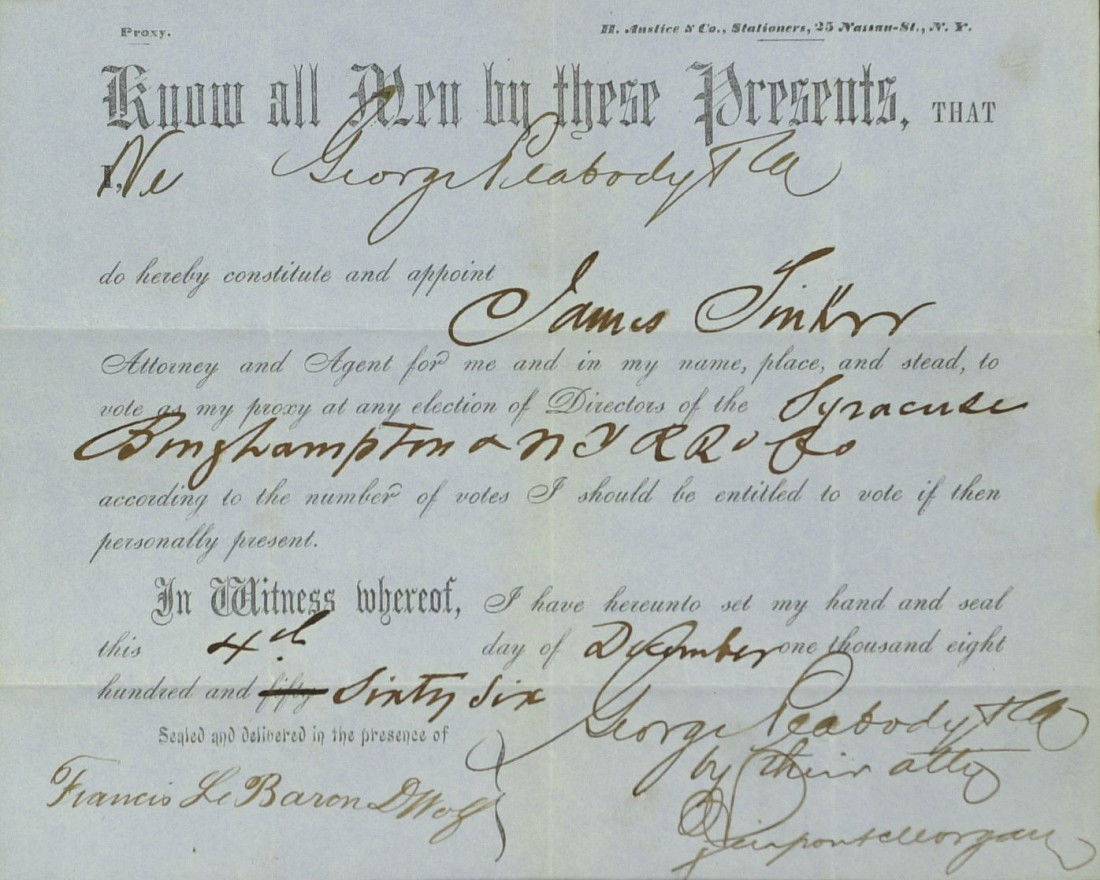 Proxy.
H. Anstice & Co., Stationers, 25 Nassau-St., N. Y.
Know all Men by these Presents, THAT
I, We George Peabody & Co
do hereby constitute and appoint
James Tinker
Attorney and Agent for me and in my name, place, and stead, to
vote as my proxy at any election of Directors of the Syracuse
Binghampton & N Y R R Co
according to the number of votes I should be entitled to vote if then
personally present.
In Witness whereof, I have hereunto set my hand and seal
this 4th day of December one thousand eight
hundred and fifty Sixty Six
George Peabody & Co
Sealed and delivered in the presence of
by their atty
Francis Le Baron DWolf
J Pierpont Morgan